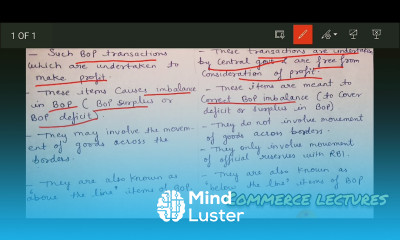 1 OF 1
- Such BOP transactions
which are undertaken to
make profit.
- These items causes imbalance
in BOP ( BOP surplus or
BOP deficit).
- They may involve the movem-
ent of goods across the
borders.
- They are also known as
"above the line" items of BOP.
- These transactions are undertaken
by Central govt & are free from
consideration of profit.
- These items are meant to
correct BOP imbalance (to cover
deficit or surplus in BOP)
- They do not involve movement
of goods across borders.
- They only involve movement
of official reserves with RBI.
- They are also known as
"below the line" items of BOP
Mind
Luster
COMMERCE LECTURES